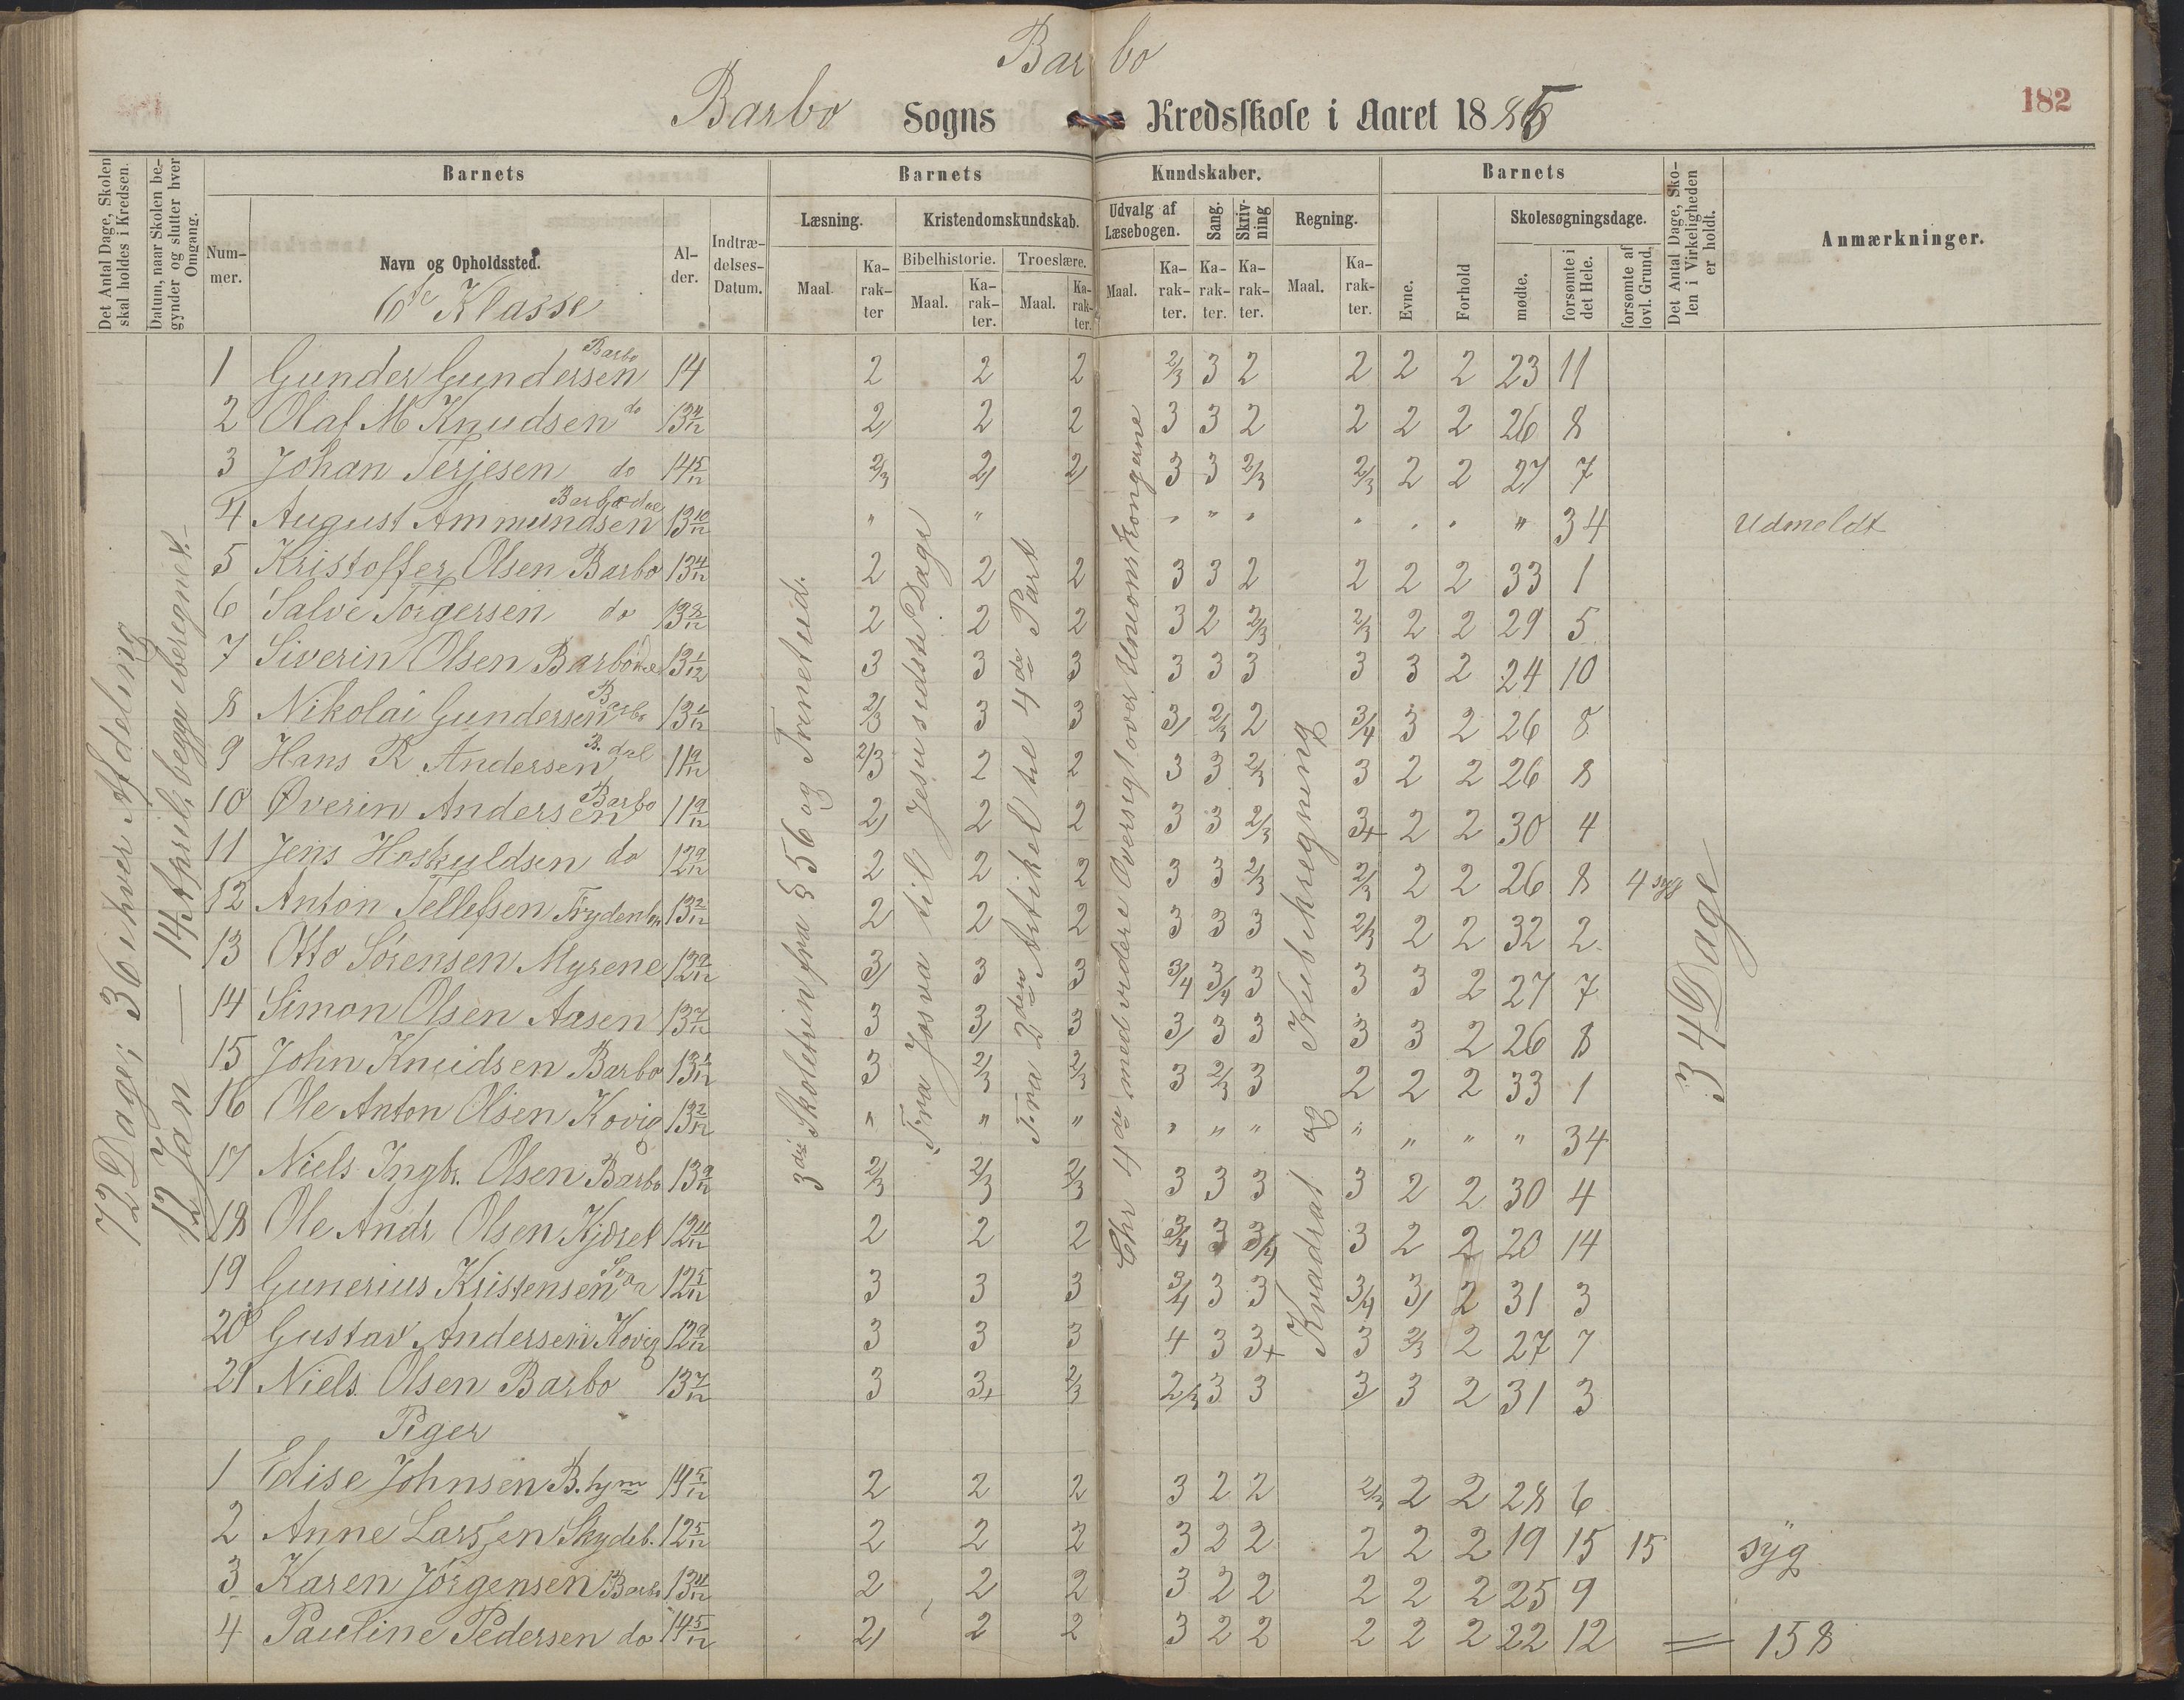 Barbo
182
Barbo Sogns Kredsskole i Aaret 1885
Det Antal Dage, Skolen skal holdes i Kredsen.
Datum, naar Skolen begynder og slutter hver Omgang.
Barnets
Barnets Kundskaber.
Barnets
Det Antal Dage, Skolen i Virkeligheden er holdt.
Anmærkninger.
Nummer.
Navn og Opholdssted.
6te Klasse
Alder.
Indtrædelses-Datum.
Læsning.
Kristendomskundskab.
Udvalg af Læsebogen.
Sang.
Skrivning
Regning.
Evne.
Forhold
Skolesøgningsdage.
Bibelhistorie.
Troeslære.
Maal.
Karakter
Maal.
Karakter.
Maal.
Karakter.
Maal.
Karakter.
Karakter.
Karakter.
Maal.
Karakter.
mødte.
forsømte i det Hele.
forsømte af lovl. Grund.
72 Dage, 36 i hver Afdeling
12 Jan — 14 April, begge iberegnet.
3die Skoletrin fra § 56 og Trinet ud.
Fra Josva til Jesu sidste Dage
Fra 2den Artikel til 4de Part
Chr 4de med videre Oversigt over Unionskongerne
Kvadrat og Kubikregning
34 Dage
1 Gunder Gundersen Barbo 14 2 2 2 2/3 3 2 2 2 2 23 11
2 Olaf M Knudsen do 13 4/12 2 2 2 3 3 2 2 2 2 26 8
3 Johan Terjesen do 14 5/12 2/3 2 2 3 3 2/3 2/3 2 2 27 7
4 August Ammundsen Barbodal 13 10/12 " " " " " " " " " 34 Udmeldt
5 Kristoffer Olsen Barbo 13 4/12 2 2 2 3 3 2 2 2 2 33 1
6 Salve Torgersen do 13 8/12 2 2 2 3 2 2/3 2/3 2 2 29 5
7 Siverin Olsen Barbodal 13 1/12 3 3 3 3 3 3 3 3 2 24 10
8 Nikolai Gundersen Barbo 13 1/12 2/3 3 3 3 2/3 2 3/4 3 2 26 8
9 Hans R Andersen B. dal 11 9/12 2/3 2 2 3 3 2/3 3 2 2 26 8
10 Øverin Andersen Barbo 11 9/12 2 2 2 3 3 2/3 3+ 2 2 30 4
11 Jens Hoskuldsen do 12 9/12 2 2 2 3 3 2/3 2/3 2 2 26 8 4 syg
12 Anton Tellefsen 13 2/12 2 2 2 3 3 3 2/3 2 2 32 2
13 Otto Sørensen Myrene 12 9/12 3 3 3 3/4 3/4 3 3 3 2 27 7
14 Simon Olsen Aasen 13 7/12 3 3 3 3 3 3 3 3 2 26 8
15 John Knudsen Barbo 13 1/12 3 2/3 2/3 3 2/3 3 2 2 2 33 1
16 Ole Anton Olsen Kovig 13 2/12 " " " " " " " " " " 34
17 Niels Ingbr. Olsen Barbo 13 9/12 2/3 2/3 2/3 3 3 3 3 2 2 30 4
18 Ole Andr Olsen 12 11/12 2 2 2 3/4 3 3/4 3 2 2 20 14
19 Gunerius Kristensen 12 5/12 3 3 3 3/4 3 3 3/4 3 2 31 3
20 Gustav Andersen Kovig 12 9/12 3 3 3 4 3 3+ 3 2/3 2 27 7
21 Niels Olsen Barbo 13 7/12 3 3+ 2/3 2/3 3 3 3 3 2 31 3
Piger
1 Edise Johnsen 14 5/12 2 2 2 3 2 2 2/3 2 2 28 6
2 Anne Larssen Skydeb. 12 5/12 2 2 2 3 2 2 2 2 2 19 15 15 syg
3 Karen Jörgensen Barbo 13 11/12 2 2 2 3 2 2 2 2 2 25 9
4 Pauline Pedersen do 14 5/12 2 2 2 3 2 2 2 2 2 22 12 = 158